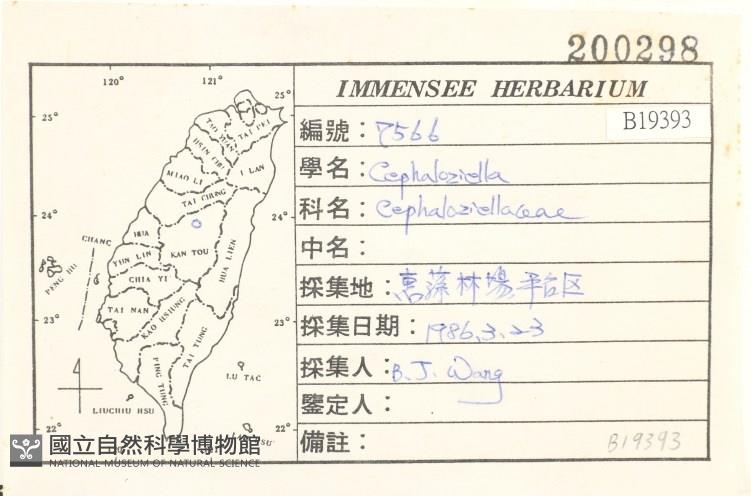 200298
IMMENSEE HERBARIUM
編號：7566
B19393
學名：Cephaloziella
科名：Cephaloziellaceae
中名：
採集地：惠蓀林場平台区
採集日期：1986.3.23
採集人：B.J. Wang
鑒定人：
備註：
B19393
120° 121°
25° 25°
TAO YUAN
TAI PEI
HSIN CHU
I LAN
MIAO LI
TAI CHUNG
24° 24°
CHANG
HUA
PENG HU
YUN LIN
KAN TOU
HUA LIEN
CHIA YI
TAI NAN
KAO HSIUNG
23° 23°
TAI TUNG
PING TUNG
LU TAO
LIUCHIU HSU
22° 22°
HSU
國立自然科學博物館
NATIONAL MUSEUM OF NATURAL SCIENCE